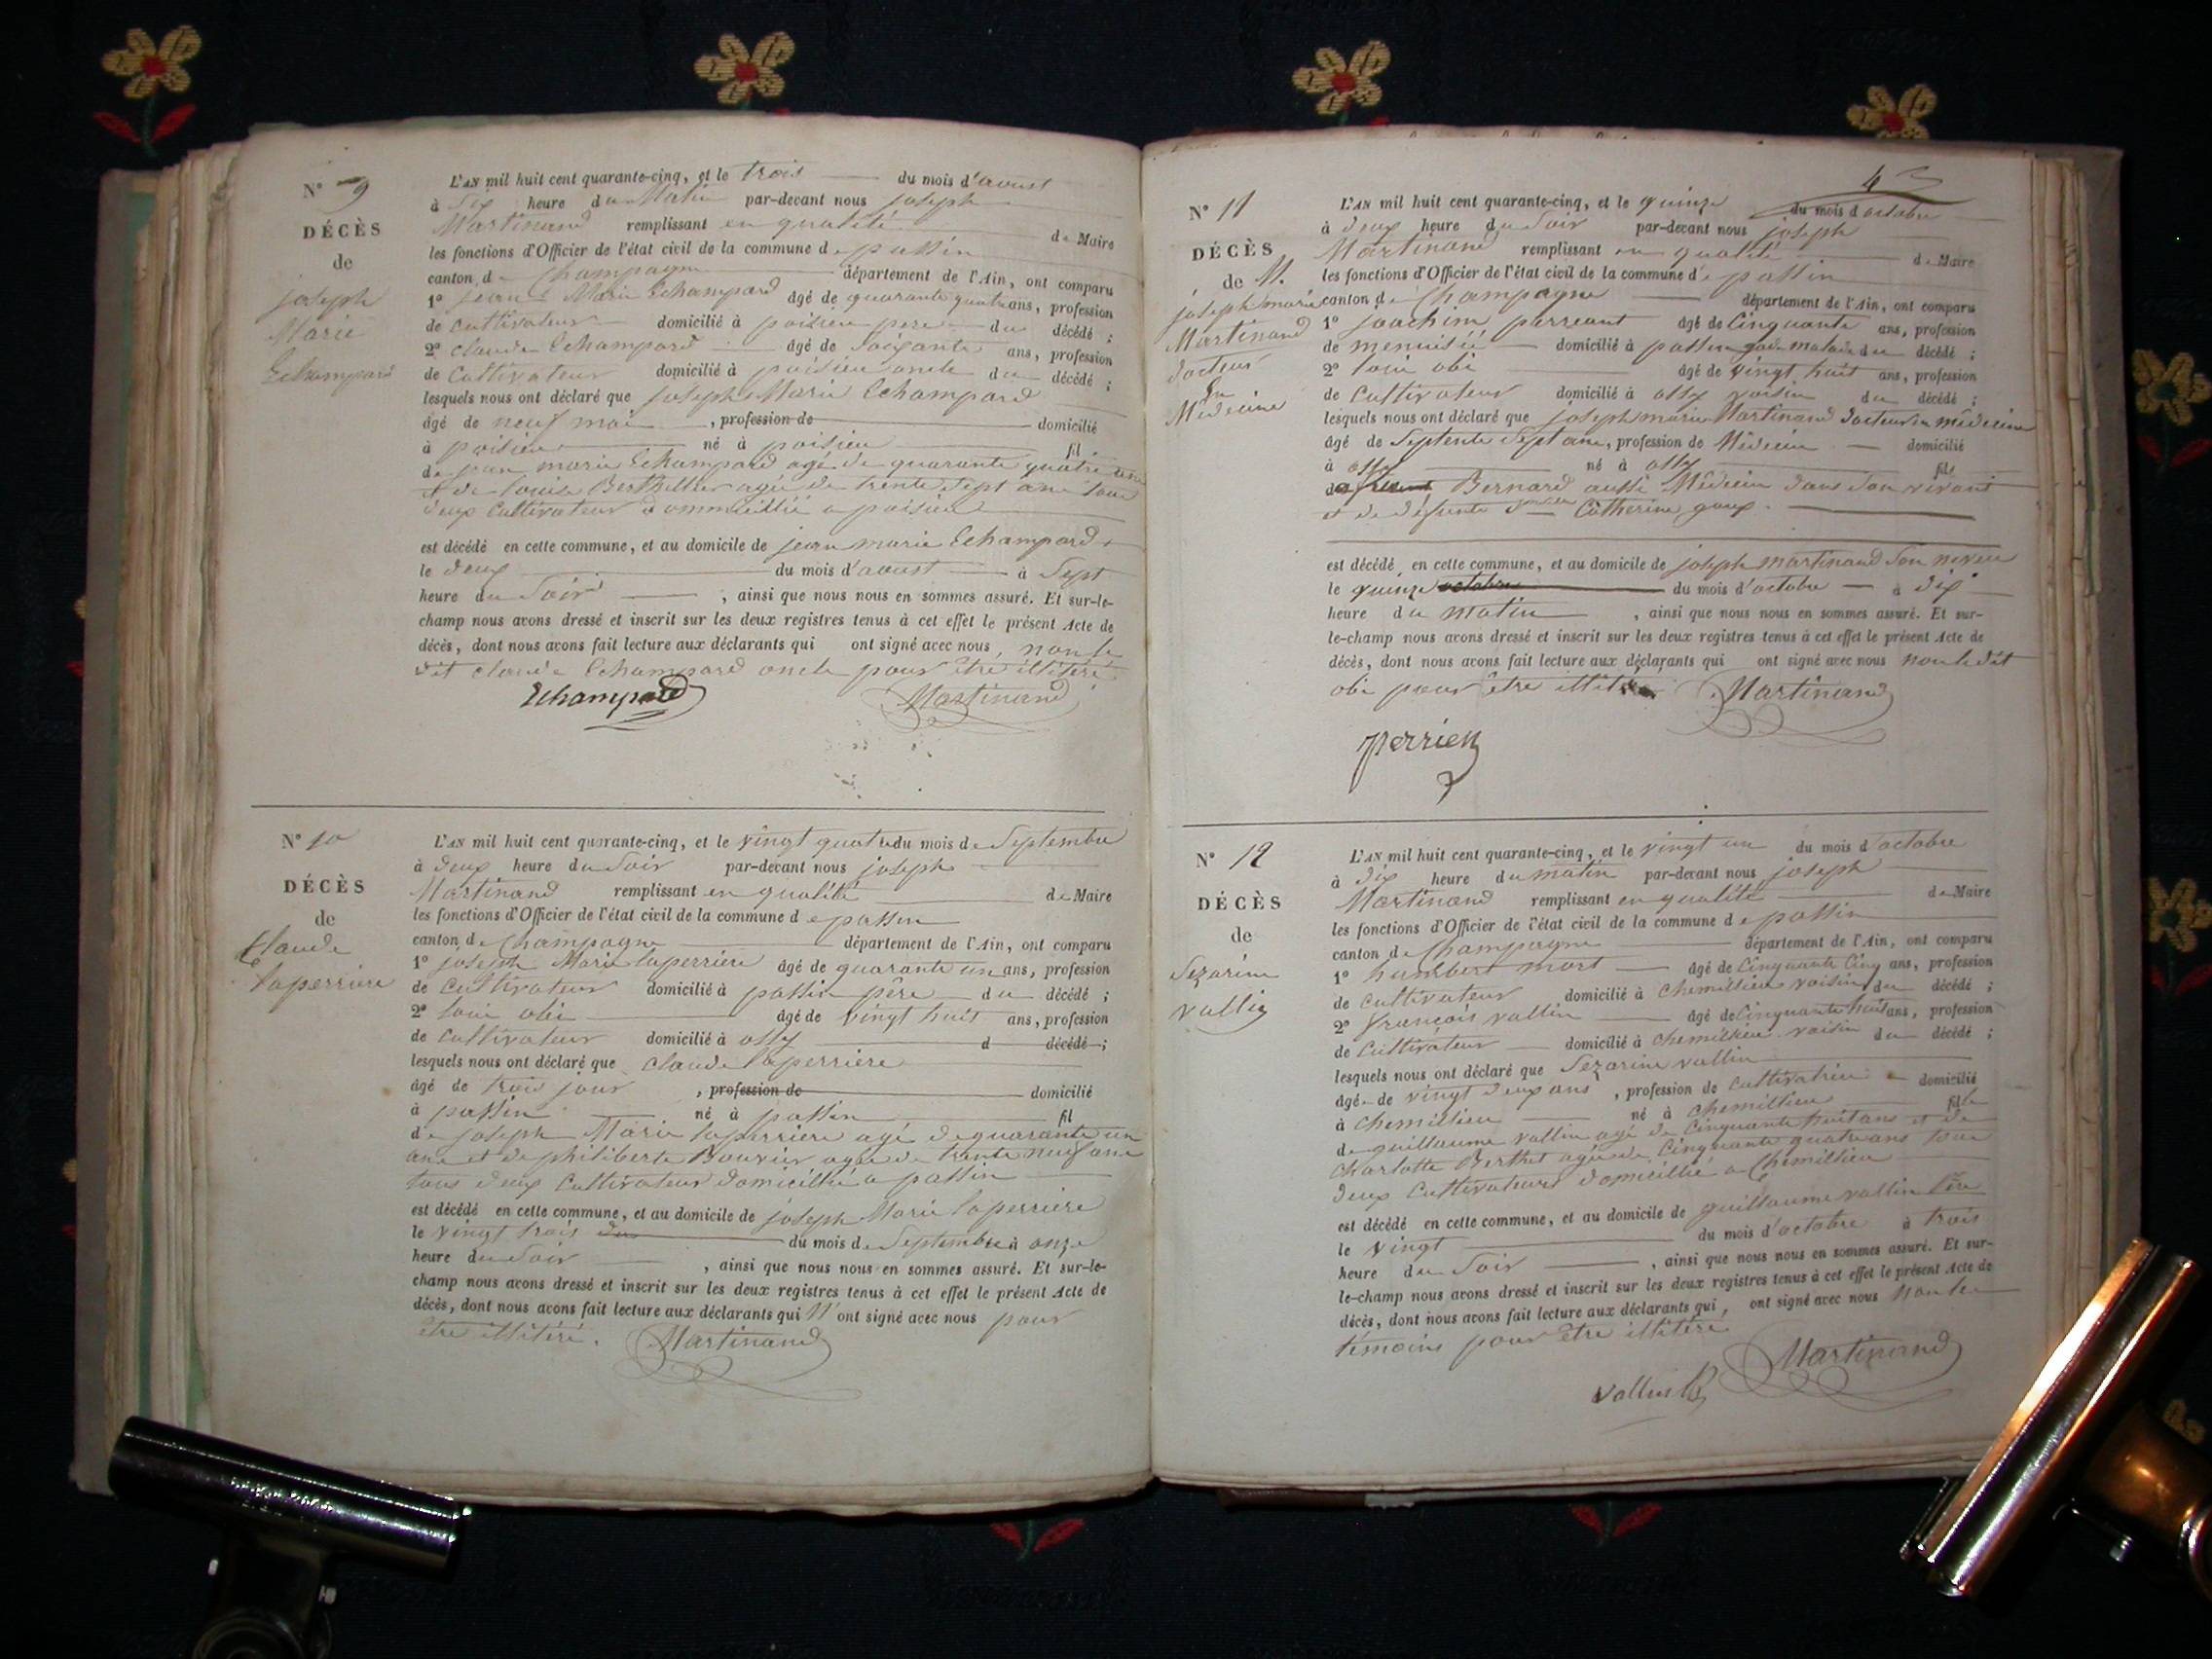 N° 9
DÉCÈS
de
joseph
Marie
Echampard
L'AN mil huit cent quarante-cinq, et le trois du mois d'aoust
à dix heure du Matin par-devant nous joseph
Martinand remplissant en qualité de Maire
les fonctions d'Officier de l'état civil de la commune de passin
canton de Champagne département de l'Ain, ont comparu
1° jean Marie Echampard âgé de quarante quatre ans, profession
de cultivateur domicilié à poisieu pere du décédé ;
2° claude Echampard âgé de soixante ans, profession
de Cultivateur domicilié à poisieu oncle du décédé ;
lesquels nous ont déclaré que joseph Marie Echampard
âgé de neuf moi , profession de domicilié
à poisieu né à poisieu fil
de jean marie Echampard agé de quarante quatre ans
et de louise Berthellier agée de trente sept ans tous
deux Cultivateur dommicillié a poisieu
est décédé en cette commune, et au domicile de jean marie Echampard
le deux du mois d'aoust à Sept
heure du Soir , ainsi que nous nous en sommes assuré. Et sur-le-
champ nous avons dressé et inscrit sur les deux registres tenus à cet effet le présent Acte de
décès, dont nous avons fait lecture aux déclarants qui ont signé avec nous, non le
dit claude Echampard oncle pour être illitéré
Echampard Martinand
N° 10
DÉCÈS
de
Claude
laperriere
L'AN mil huit cent quarante-cinq, et le vingt quatre du mois de Septembre
à deux heure du Soir par-devant nous joseph
Martinand remplissant en qualité de Maire
les fonctions d'Officier de l'état civil de la commune de passin
canton de Champagne département de l'Ain, ont comparu
1° joseph Marie laperriere âgé de quarante un ans, profession
de cultivateur domicilié à passin père du décédé ;
2° loui obi âgé de vingt huit ans, profession
de cultivateur domicilié à ossy d décédé ;
lesquels nous ont déclaré que claude laperriere
âgé de trois jour , profession de domicilié
à passin né à passin fil
de joseph Marie laperriere agé de quarante un
ans et de philiberte Bouvier agée de trente neuf ans
tous deux Cultivateur domicillié a passin
est décédé en cette commune, et au domicile de joseph Marie laperriere
le vingt trois du mois de Septembre à onze
heure du Soir , ainsi que nous nous en sommes assuré. Et sur-le-
champ nous avons dressé et inscrit sur les deux registres tenus à cet effet le présent Acte de
décès, dont nous avons fait lecture aux déclarants qui N'ont signé avec nous pour
être illitéré. Martinand
N° 11
DÉCÈS
de M.
joseph marie
Martinand
docteur
En
Médecine
L'AN mil huit cent quarante-cinq, et le quinze du mois d'octobre
à deux heure du Soir par-devant nous joseph
Martinand remplissant en qualité de Maire
les fonctions d'Officier de l'état civil de la commune de passin
canton de Champagne département de l'Ain, ont comparu
1° joachim âgé de Cinquante ans, profession
de menuisié domicilié à passin garde malade du décédé ;
2° loui obi âgé de vingt huit ans, profession
de Cultivateur domicilié à ossy voisin du décédé ;
lesquels nous ont déclaré que joseph marie Martinand docteur en médecine
âgé de Septente Sept ans, profession de Médecin domicilié
à ossy né à ossy fils
Bernard aussi Médecin dans son vivant
et de défunte Catherine goux
est décédé en cette commune, et au domicile de joseph martinand Son neveu
le quinze octobre du mois d'octobre à dix
heure du matin , ainsi que nous nous en sommes assuré. Et sur-
le-champ nous avons dressé et inscrit sur les deux registres tenus à cet effet le présent Acte de
décès, dont nous avons fait lecture aux déclarants qui ont signé avec nous non le dit
obi pour être Martinand
N° 12
DÉCÈS
de
Sezarine
vallin
L'AN mil huit cent quarante-cinq, et le vingt un du mois d'octobre
à dix heure du matin par-devant nous joseph
Martinand remplissant en qualité de Maire
les fonctions d'Officier de l'état civil de la commune de passin
canton de Champagne département de l'Ain, ont comparu
1° humbert mort âgé de Cinquante Cinq ans, profession
de cultivateur domicilié à chemillieu voisin du décédé ;
2° françois vallin âgé de Cinquante huit ans, profession
de Cultivateur domicilié à chemillieu voisin du décédé ;
lesquels nous ont déclaré que Sezarine vallin
âgé de vingt deux ans , profession de cultivatrice domicilié
à chemillieu né à chemillieu fille
de guillaume vallin agé de Cinquante huit ans et de
charlotte Berthet agée de Cinquante quatre ans tous
deux Cultivateurs domicillié a Chemillieu
est décédé en cette commune, et au domicile de guillaume vallin
le vingt du mois d'octobre à trois
heure du Soir , ainsi que nous nous en sommes assuré. Et sur-
le-champ nous avons dressé et inscrit sur les deux registres tenus à cet effet le présent Acte de
décès, dont nous avons fait lecture aux déclarants qui, ont signé avec nous non les
témoins pour être illitéré
Martinand